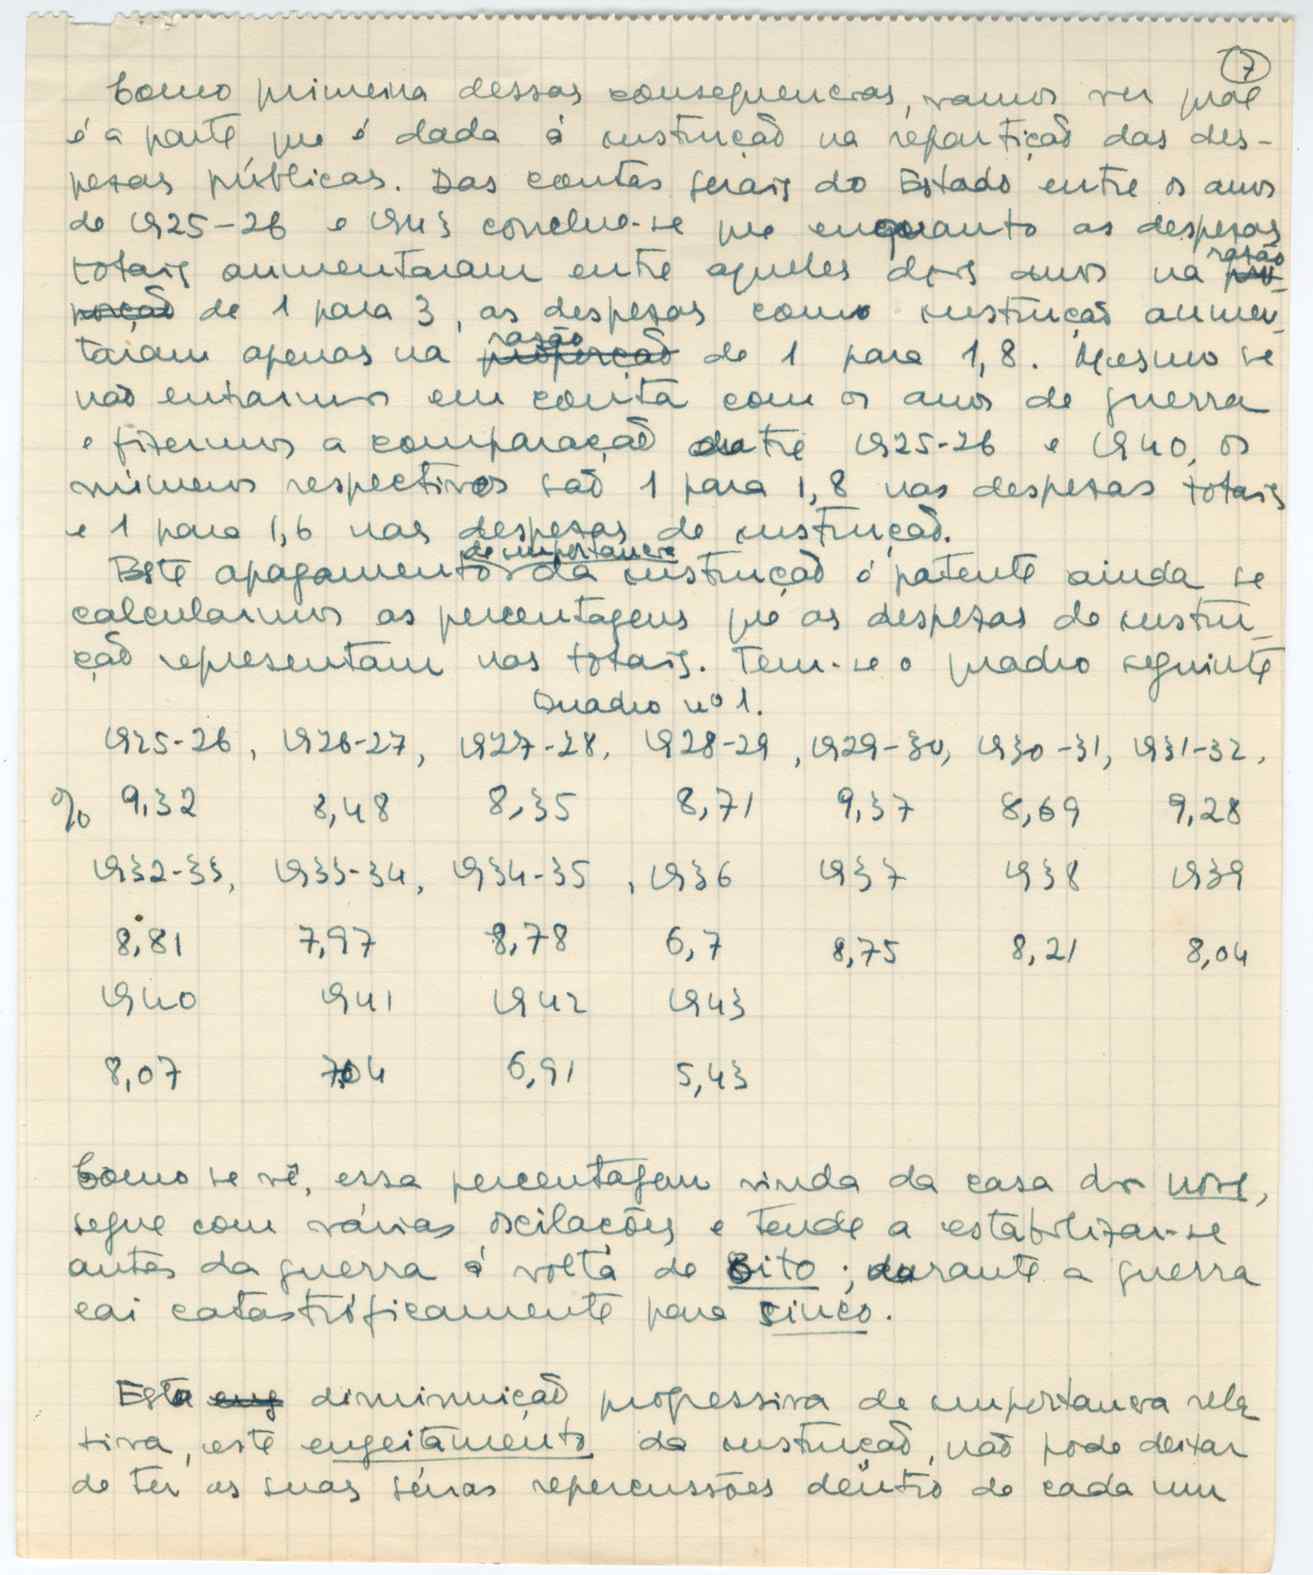 7
Como primeira dessas consequencias, vamos ver qual
é a parte que é dada á instrução na repartição das des-
pezas públicas. Das contas gerais do Estado entre os anos
de 1925-26 e 1943 conclue-se que enquanto as despezas
totais aumentaram entre aqueles dois anos na razão pro-
porção de 1 para 3, as despezas como instrução aumen-
taram apenas na proporção razão de 1 para 1,8. Mesmo se
não entrarmos em conta com os anos de guerra
e fizermos a comparação entre 1925-26 e 1940, os
números respectivos são 1 para 1,8 nas despezas totais
e 1 para 1,6 nas despezas de instrução.
Este apagamento de importancia da instrução é patente ainda se
calcularmos as percentagens que as despezas de instru-
ção representam nos totais. Tem-se o quadro seguinte
Quadro nº 1.
1925-26, 1926-27, 1927-28, 1928-29, 1929-30, 1930-31, 1931-32,
% 9,32 8,48 8,35 8,71 9,37 8,69 9,28
1932-33, 1933-34, 1934-35, 1936 1937 1938 1939
8,81 7,97 8,78 6,7 8,75 8,21 8,04
1940 1941 1942 1943
8,07 7,04 6,91 5,43
Como se vê, essa percentagem vinda da casa dos nove,
segue com várias oscilações e tende a estabilizar-se
antes da guerra á volta de oito; durante a guerra
cai catastróficamente para cinco.
Esta eng diminuição progressiva de importancia rela
tiva, este engeitamento da instrução, não pode deixar
de ter as suas sérias repercussões dentro de cada um